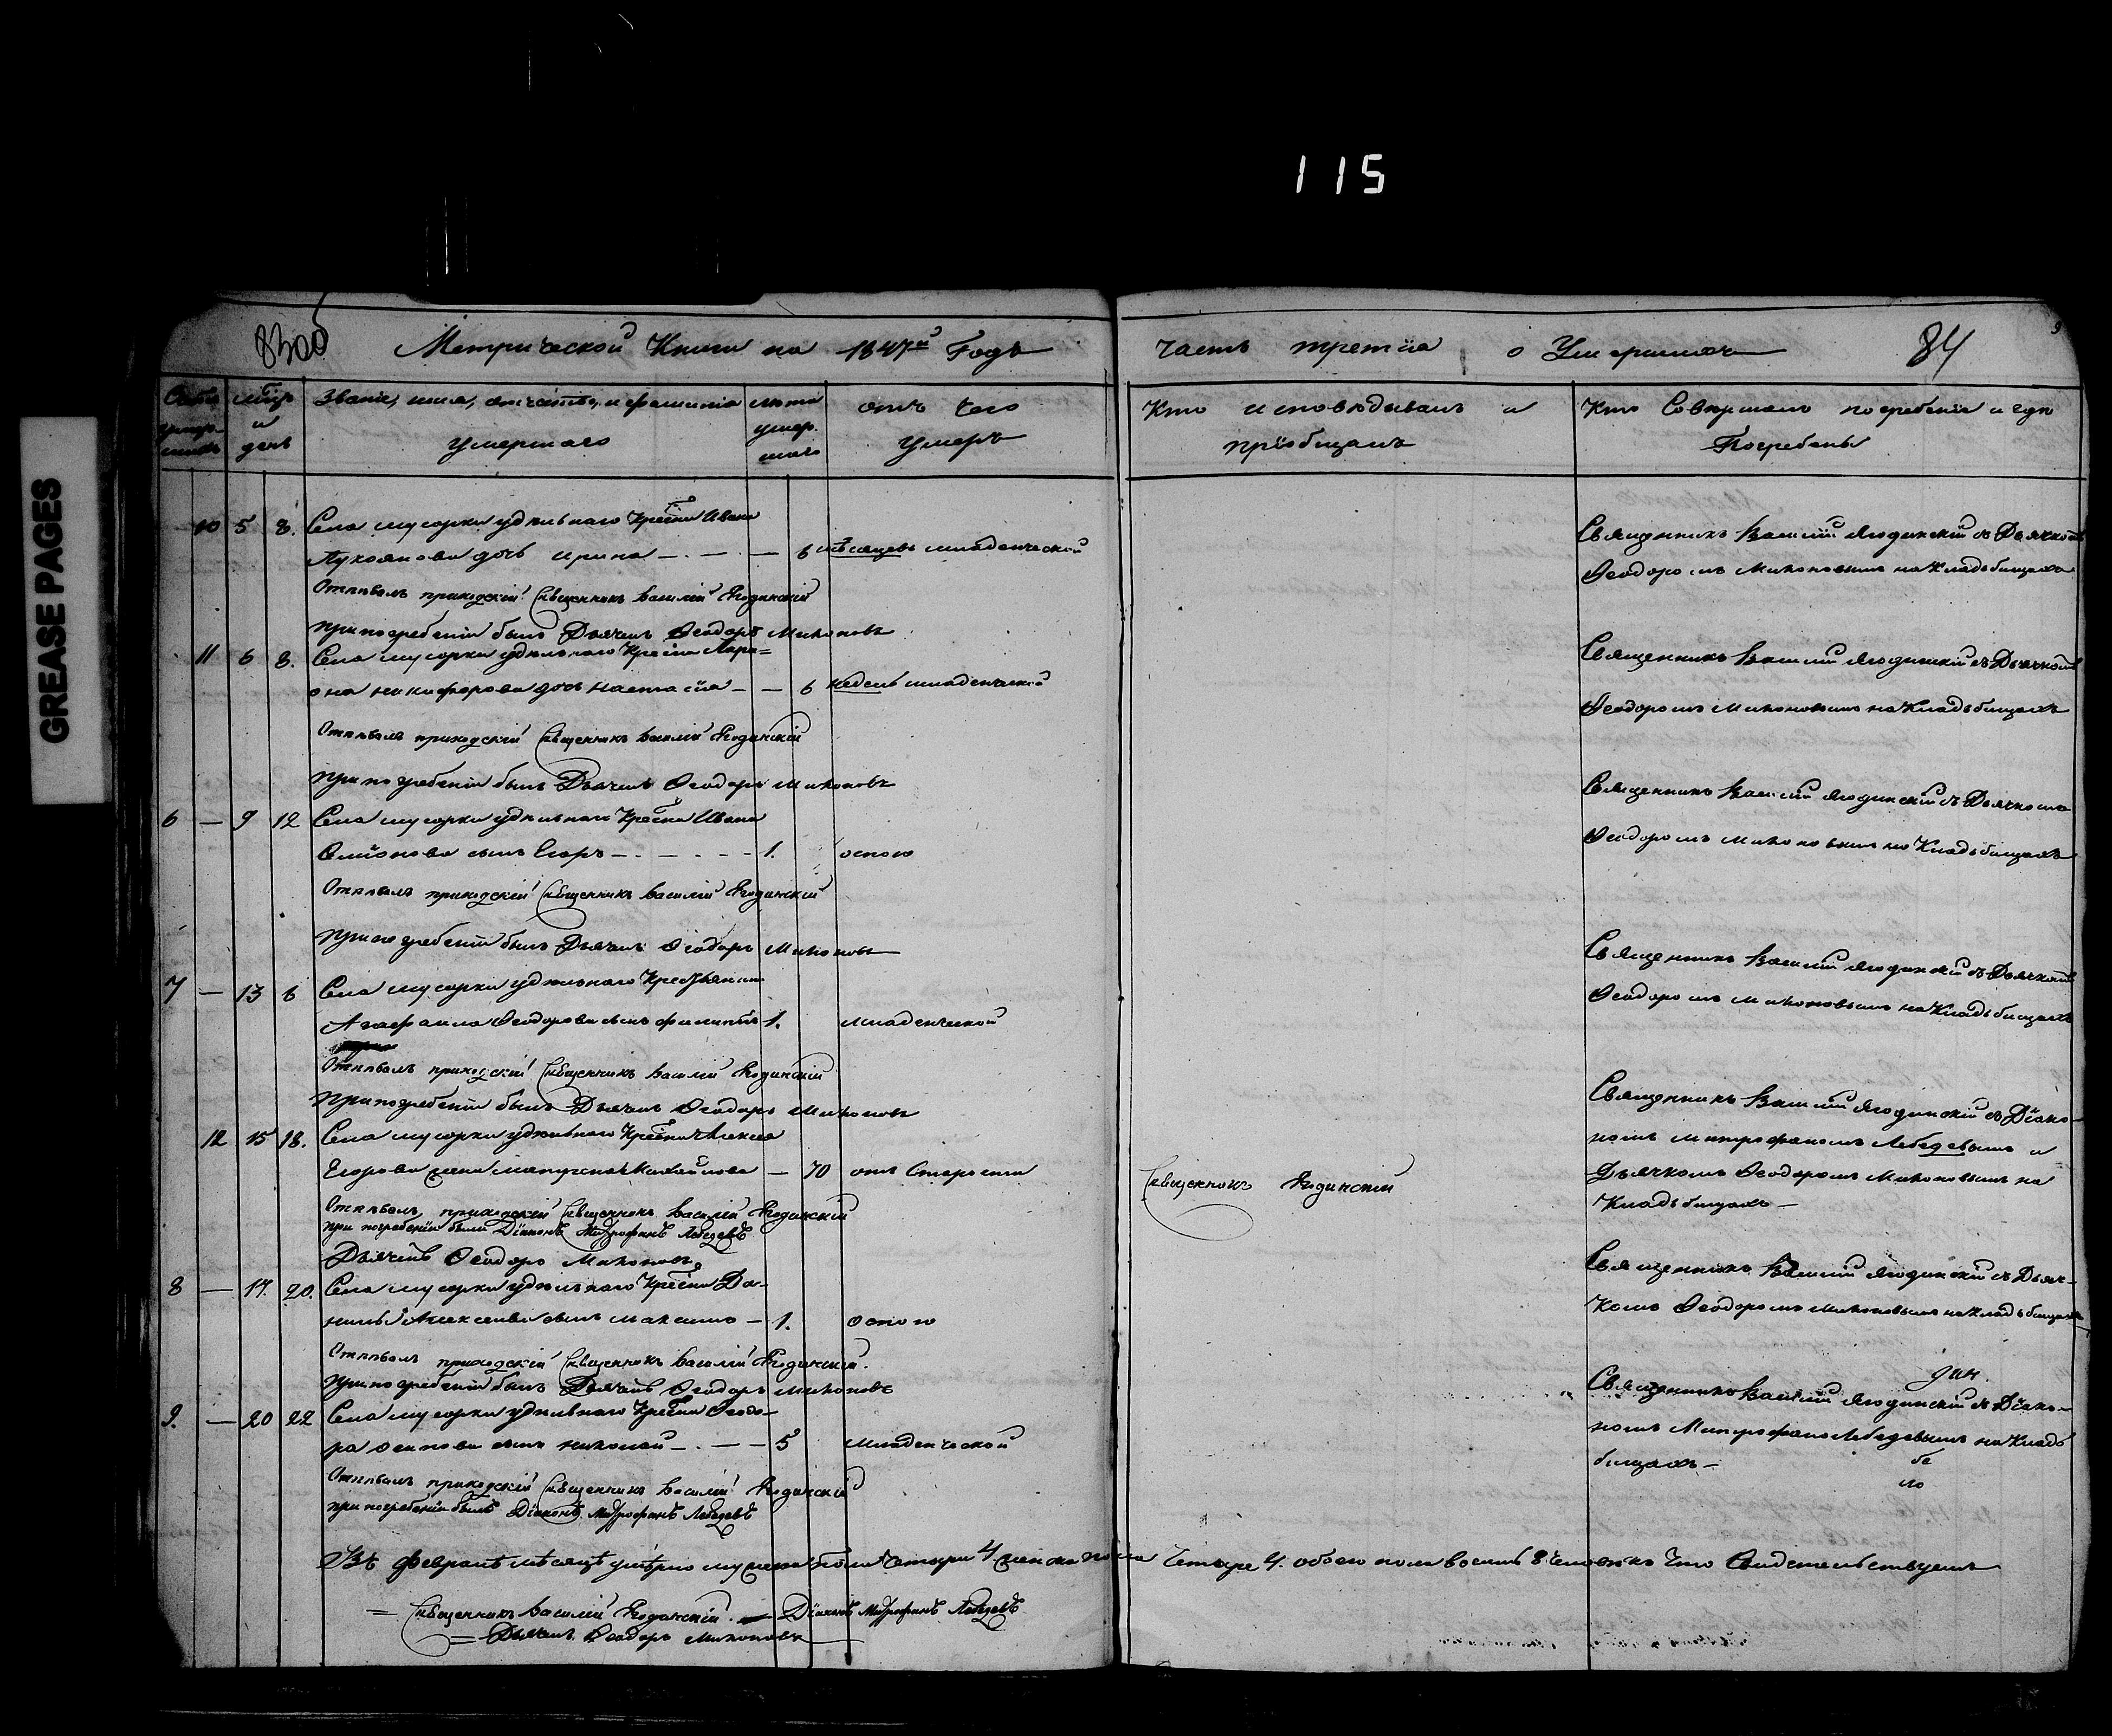 115
GREASE PAGES
83об
Метрической Книги на 1847й Годъ
часть третiа о Умершихъ
84
Счетъ умер-шихъ
мцъ и день
Званiе, имя, отчество, и фамилiа умершаго
лета умер-шаго
отъ чего умеръ
Кто исповѣдывалъ и прiобщалъ
Кто Совершалъ погребенiе и гдѣ Погребены
10 5 8. Села мусорки удѣльнаго Крестна Ивана
Лукоянова дочь Ирина — 6 мѣсяцевъ младенческой
Отпѣвалъ приходскiй Священникъ Василiй Ягодинскiй
при погребенiи былъ Дьячекъ Ѳеодоръ Миконовъ
Священникъ Василiй Ягодинскiй съ Дьячкомъ
Ѳеодоромъ Миконовымъ на Кладьбищахъ
11 6 8. Села мусорки удѣльнаго Крестна Лари=
она никифорова дочь настасiа — — 6 недель младенческiй
Отпѣвалъ приходскiй Священникъ Василiй Ягодинскiй
при погребенiи былъ Дьячекъ Ѳеодоръ Миконовъ
Священникъ Василiй Ягодинскiй съ Дьячкомъ
Ѳеодоромъ Миконовымъ на Кладьбищахъ
6 — 9 12 Села мусорки удѣльнаго Крестна Ивана
Семiонова сынъ Егоръ — 1. оспою
Отпѣвалъ приходскiй Священникъ Василiй Ягодинскiй
при погребенiи былъ Дьячекъ Ѳеодоръ Миконовъ
Священникъ Василiй Ягодинскiй съ Дьячкомъ
Ѳеодоромъ Миконовымъ на Кладьбищахъ
7 — 13 6 Села мусорки удѣльнаго Крестьянина
Ѳеодорова сынъ филиппъ 1. младенческой
Отпѣвалъ приходскiй Священникъ Василiй Ягодинскiй
При погребенiи былъ Дьячекъ Ѳеодоръ Миконовъ
Священникъ Василiй Ягодинскiй съ Дьячкомъ
Ѳеодоромъ Миконовымъ на Кладьбищахъ
12 15 18. Села мусорки удѣльнаго Крестна Алексея
Егорова жена Михайлова — 70 отъ Старости
Отпѣвалъ приходскiй Священникъ Василiй Ягодинскiй
при погребенiи были Дiаконъ Митрофанъ Лебедевъ
Дьячекъ Ѳеодоръ Миконовъ.
Священникъ Ягодинскiй
Священникъ Василiй Ягодинскiй съ Дiако-
номъ Митрофаномъ Лебедевымъ и
Дьячкомъ Ѳеодоромъ Миконовымъ на
Кладьбищахъ —
8 — 17. 20. Села мусорки удѣльнаго Крестна Да-
нилы Алексеива сынъ максимъ — 1. оспою
Отпѣвалъ приходскiй Священникъ Василiй Ягодинскiй.
При погребенiи былъ Дьячекъ Ѳеодоръ Миконовъ
Священникъ Василiй Ягодинскiй съ Дьяч-
комъ Ѳеодоромъ Миконовымъ на Кладьбищахъ
9. — 20 22 Села мусорки удѣльнаго Крестна Ѳеодо-
ра осипова сынъ николай — 5 Младенческой
Отпѣвалъ приходскiй Священникъ Василiй Ягодинскiй
при погребенiи былъ Дiаконъ Митрофанъ Лебедевъ
Священникъ Василiй Ягодинскiй съ Дiако-
номъ Митрофаномъ Лебедевымъ на Кладь
бищахъ —
Въ февралѣ мѣсяцѣ умерло мужеска пола четыри 4 женска пола Четыре 4. обоего пола восемь 8 человѣкъ Что Свидѣтельствуемъ
= Священникъ Василiй Ягодинскiй. — Дiаконъ Митрофанъ Лебедевъ
= Дьячекъ Ѳеодоръ Миконовъ